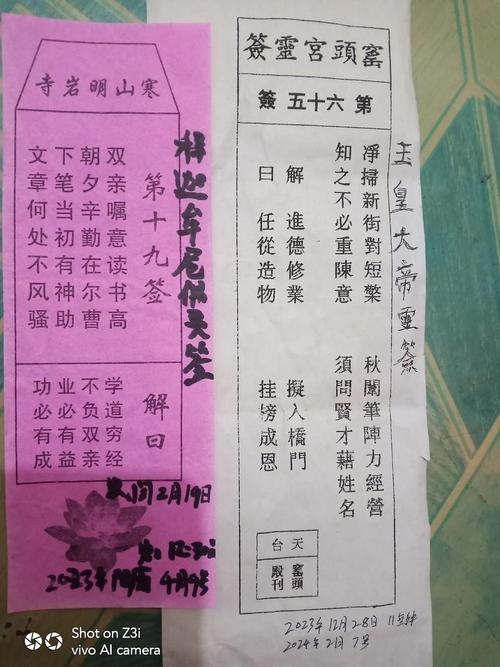 寒山明岩寺
第十九签
双亲嘱意读书高
朝夕辛勤在尔曹
下笔当初有神助
文章何处不风骚
解曰
学道穷经
不负双亲
业必有益
功必有成
释迦牟尼佛灵签
2月19日
2023年
4月9号
窰頭宮靈簽
第六十五簽
淨掃新街對短檠 秋闈筆陣力經營
知之不必重陳意 須問賢才藉姓名
解 進德修業 擬入橋門
曰 任從造物 挂榜成恩
天台
窰頭殿刊
玉皇大帝靈簽
2023年12月28日 11点钟
2024年2月7号
Shot on Z3i
vivo AI camera